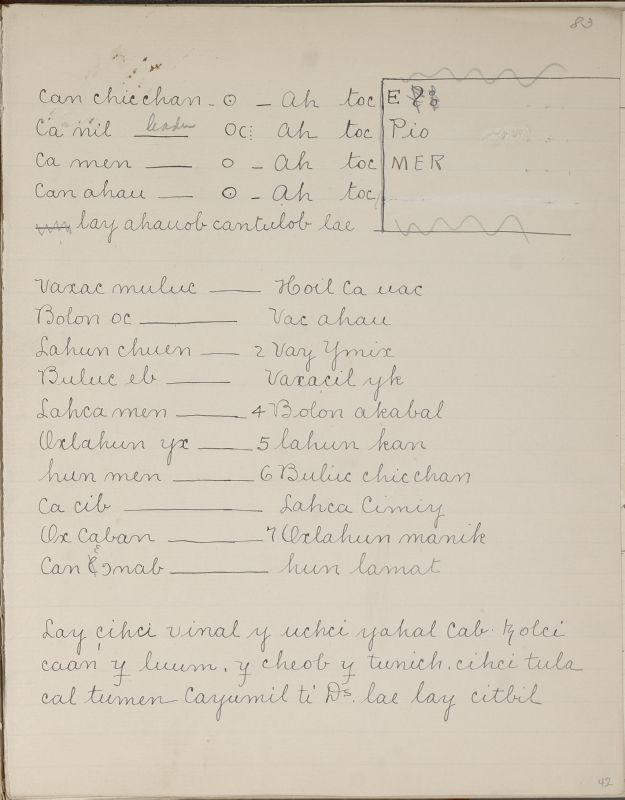 83
Can chicchan - ⊙ - Ah toc E
Ca nil leadu OC: Ah toc Pio
Ca men — o - Ah toc MER
Can ahau — ⊙ - Ah toc
lay ahauob cantulob lae
Vaxac muluc — Hoil Ca uac
Bolon oc — Vac ahau
Lahun chuen — 2 Vay Ymix
Buluc eb — Vaxacil yk
Lahca men — 4 Bolon akabal
Oxlahun yx — 5 lahun kan
hun men — 6 Buluc chicchan
Ca cib — Lahca Cimiy
Ox Caban — 7 Oxlahun manik
Can Eɔnab — hun lamat
Lay cihci vinal y uchci yahal Cab. ꜩolci
caan y luum. y cheob y tunich. cihci tula
cal tumen Cayumil ti Ds. lae lay citbil
42